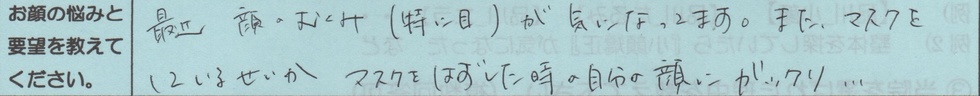 お顔の悩みと
要望を教えて
ください。
最近 顔のむくみ (特に目) が 気になってます。また、マスクを
しているせいか マスクをはずした時の自分の顔にガックリ…